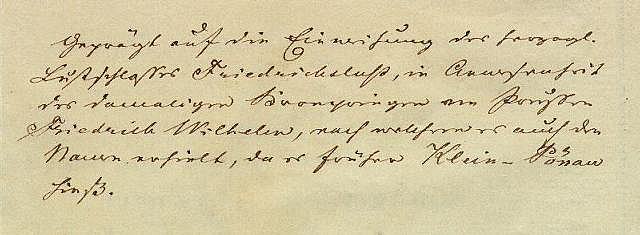 Geprägt auf die Einweihung des herzogl.
Lustschlosses Friedrichslust, in Anwesenheit
des damaligen Kronprinzen von Preußen
Friedrich Wilhelm, nach welchem es auch den
Namen erhielt, da es früher Klein-
hieß.